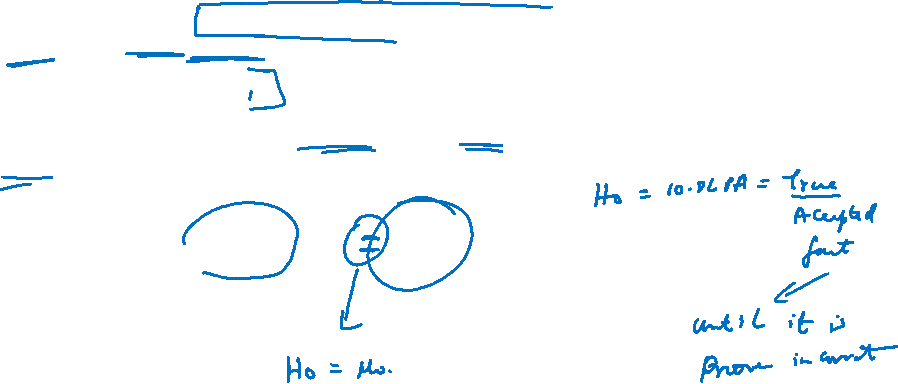 H0 = 10.8LPA = True
Accepted
fact
until it is
Prove incorrect
=
H0 = μ0.